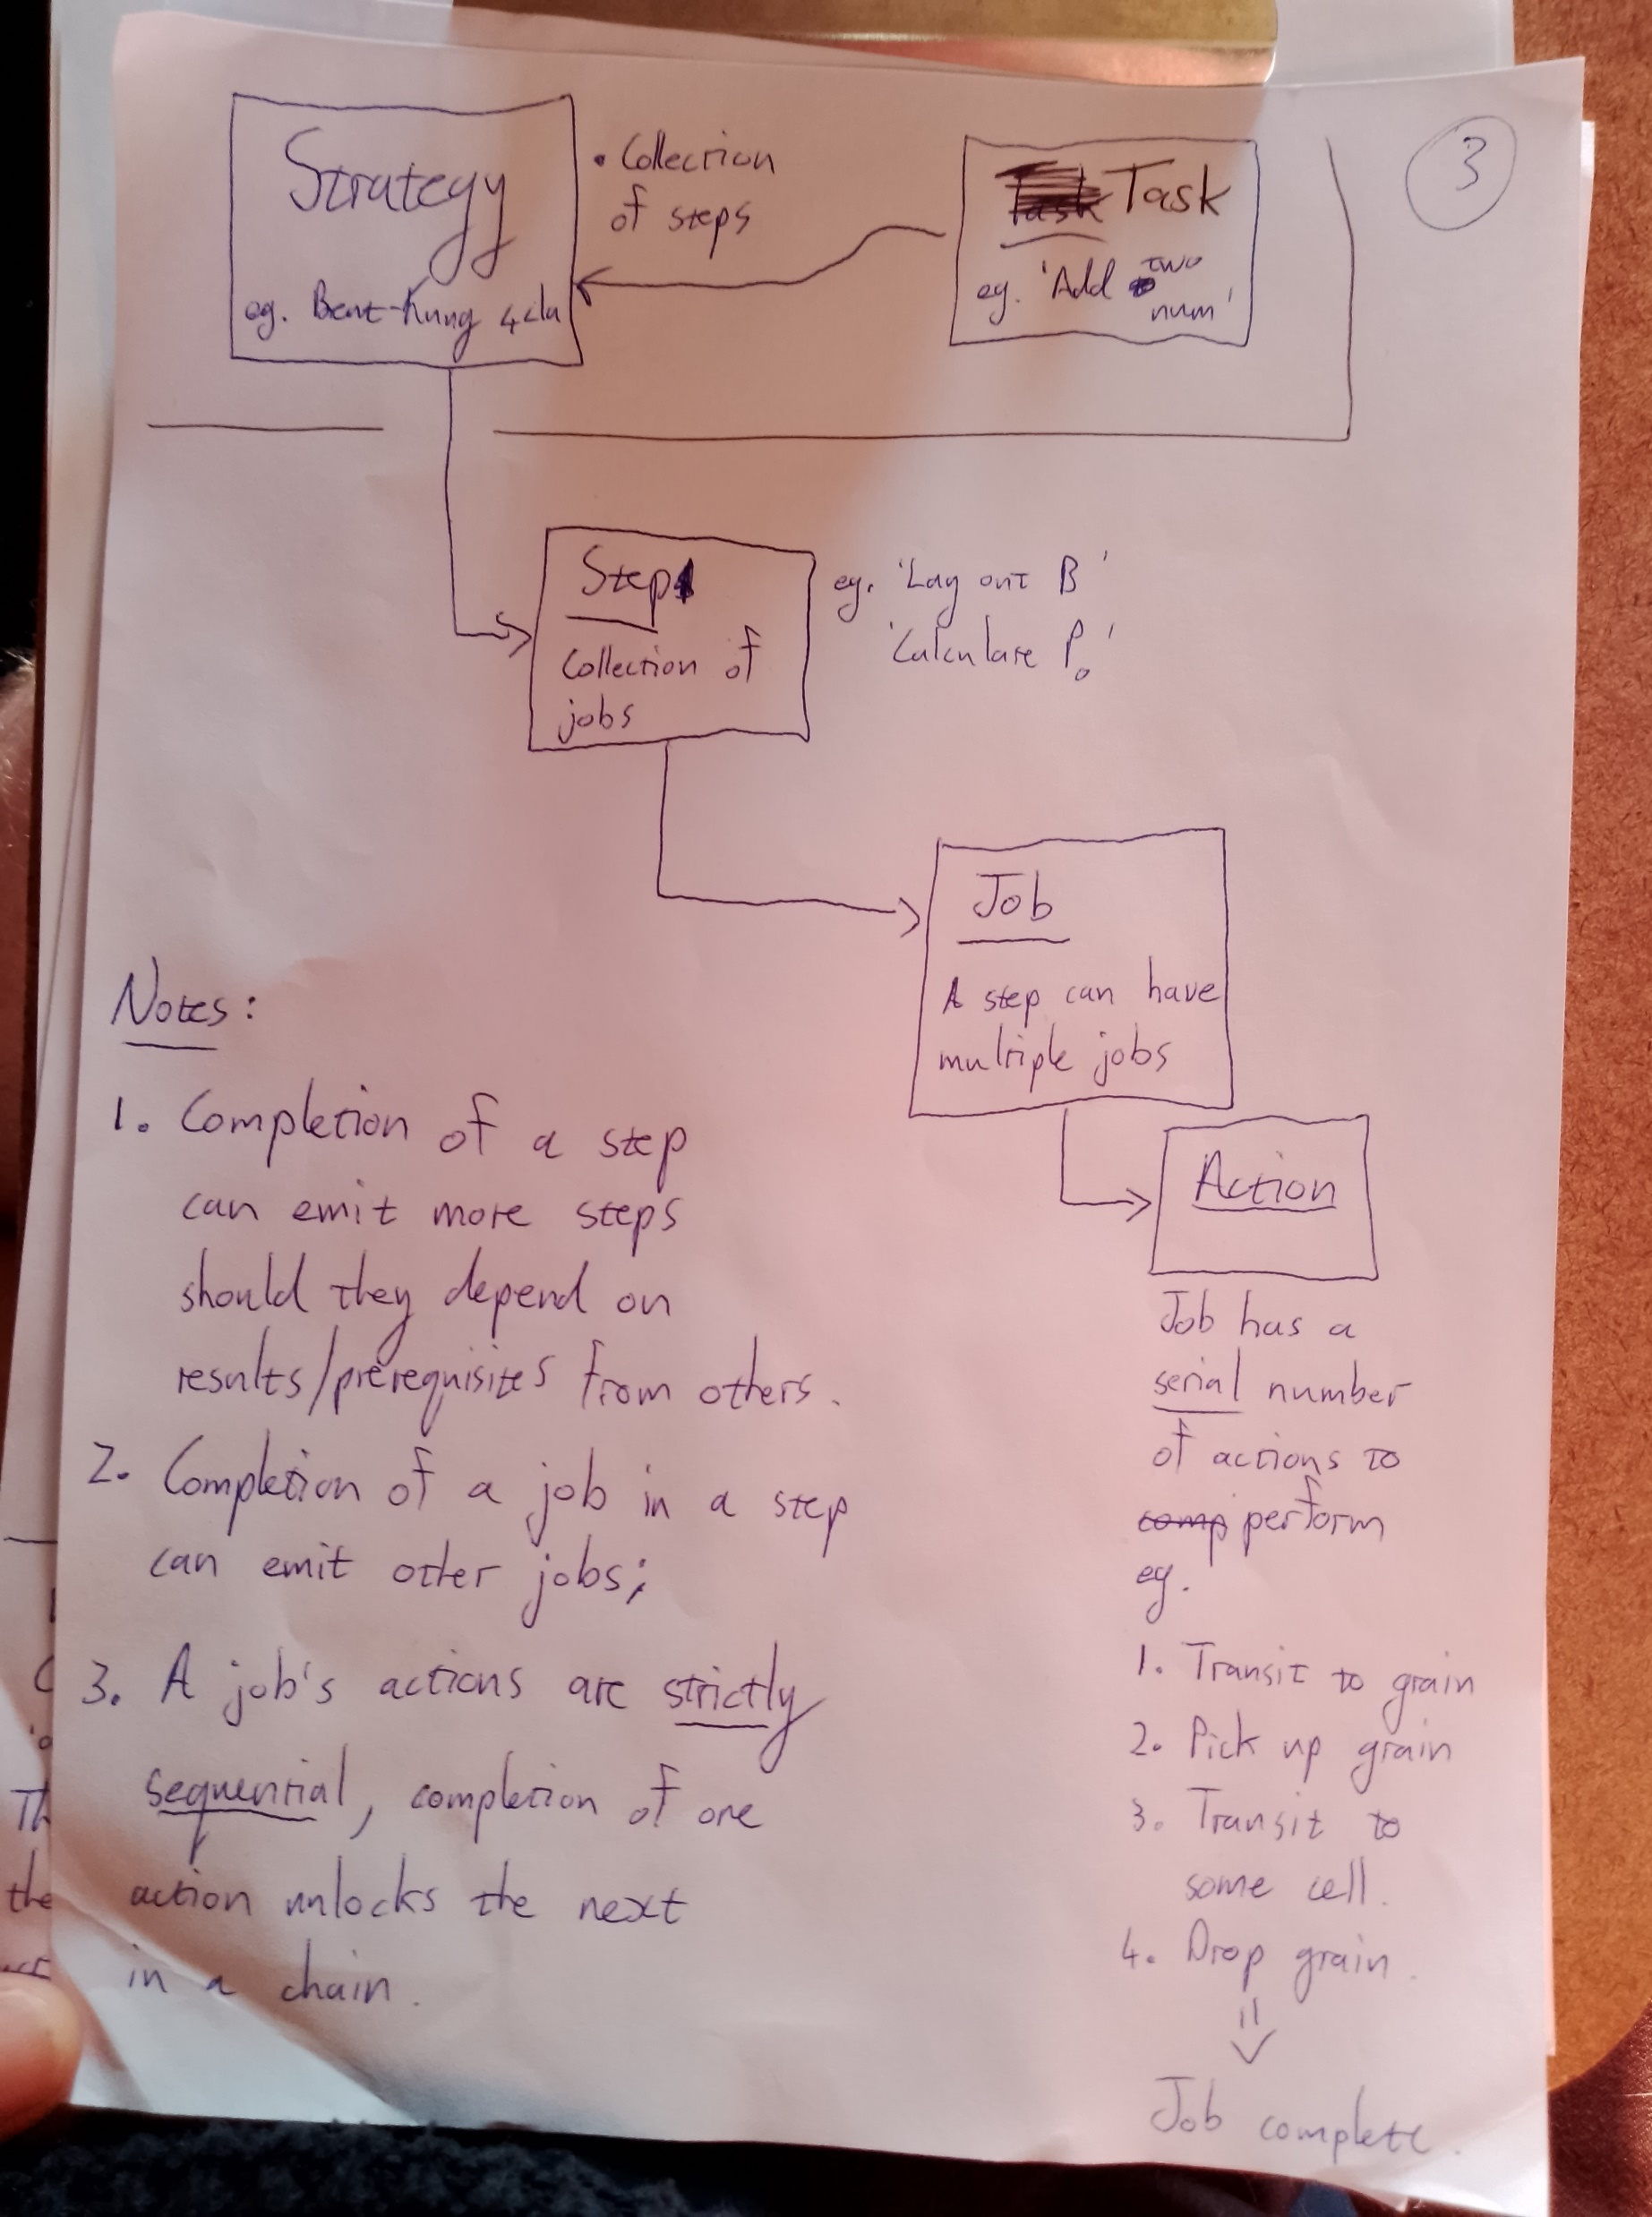 3
Strategy
eg. Bent-Kung 4cla
• Collection
of steps
Task Task
eg. 'Add two
num'
Step
Collection of
jobs
eg. 'Lay out B'
'Calculate P₀'
Job
A step can have
multiple jobs
Action
Job has a
serial number
of actions to
comp perform
eg.
1. Transit to grain
2. Pick up grain
3. Transit to
some cell.
4. Drop grain.
Job complete.
Notes:
1. Completion of a step
can emit more steps
should they depend on
results/prerequisites from others.
2. Completion of a job in a step
can emit other jobs;
3. A job's actions are strictly
sequential, completion of one
action unlocks the next
in a chain.
Th
the